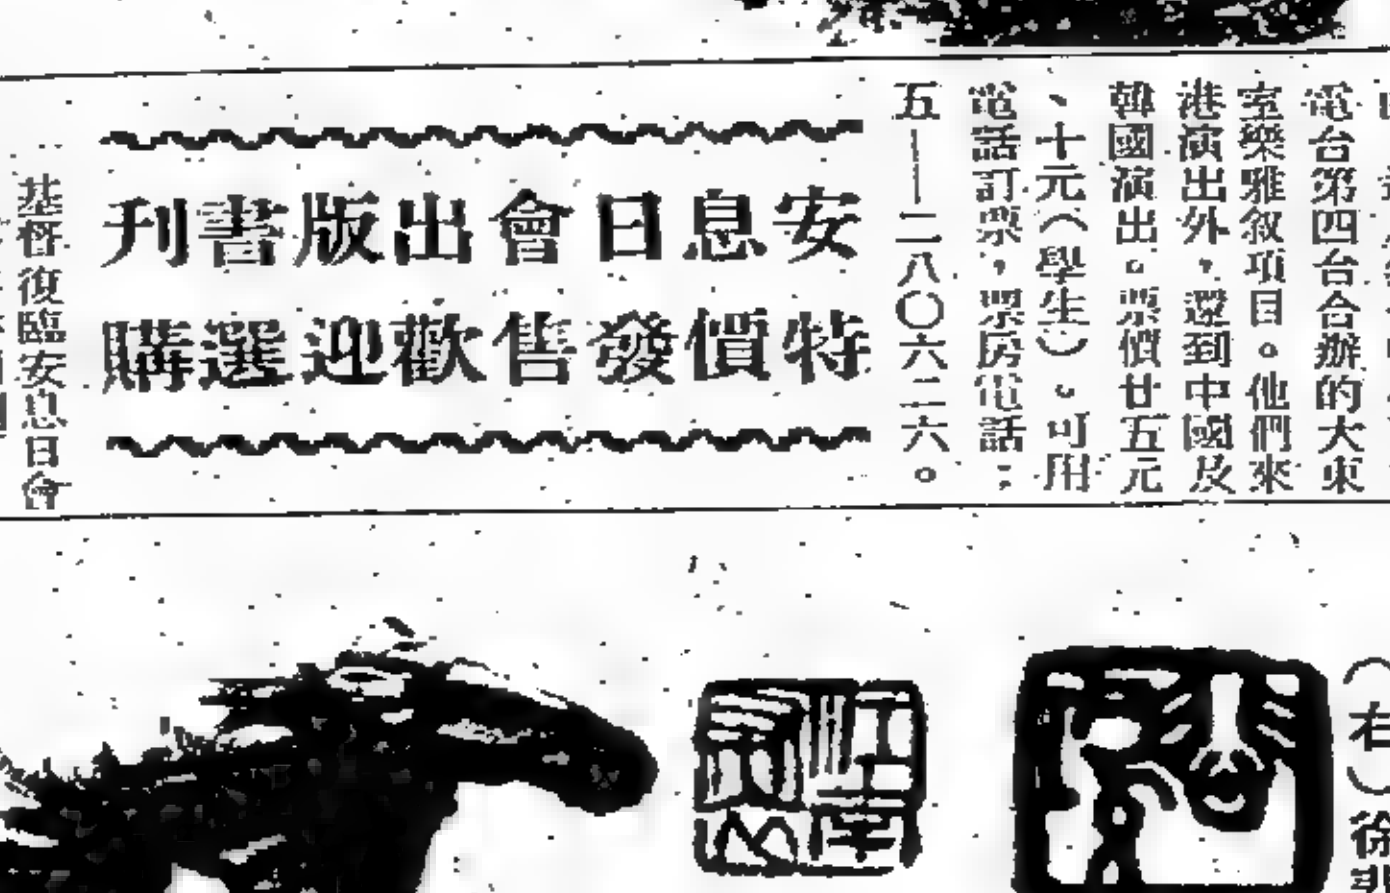 電台第四台合辦的大東
室樂雅叙項目。他們來
港演出外，還到中國及
韓國演出。票價廿五元
、十元（學生）。可用
電話訂票，票房電話：
五——二八〇六二六。
安息日會出版書刊
特價發售歡迎選購
基督復臨安息日會
（右）徐